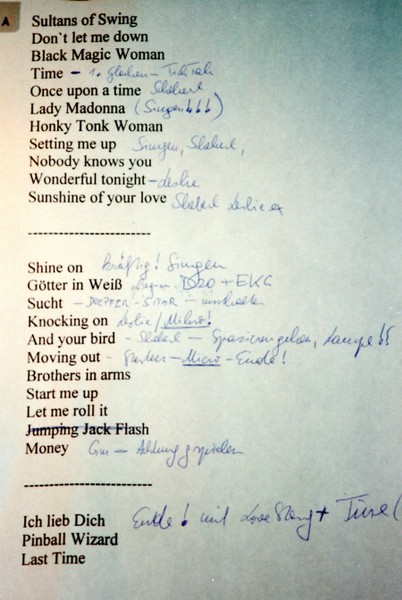 A
Sultans of Swing
Don`t let me down
Black Magic Woman
Time - 1. Glocken -
Once upon a time
Lady Madonna (Singen!!!)
Honky Tonk Woman
Setting me up Singen,
Nobody knows you
Wonderful tonight - Leslie
Sunshine of your love Leslie
--------------------------
Shine on kräftig! Singen
Götter in Weiß + EKG
Sucht - - SITAR -
Knocking on Leslie / Mikro!
And your bird - - Spazierengehen, Lampe!!
Moving out - - Micro - Ende!
Brothers in arms
Start me up
Let me roll it
Jumping Jack Flash
Money - Achtung
--------------------------
Ich lieb Dich Ende! mit Love Song +
Pinball Wizard
Last Time